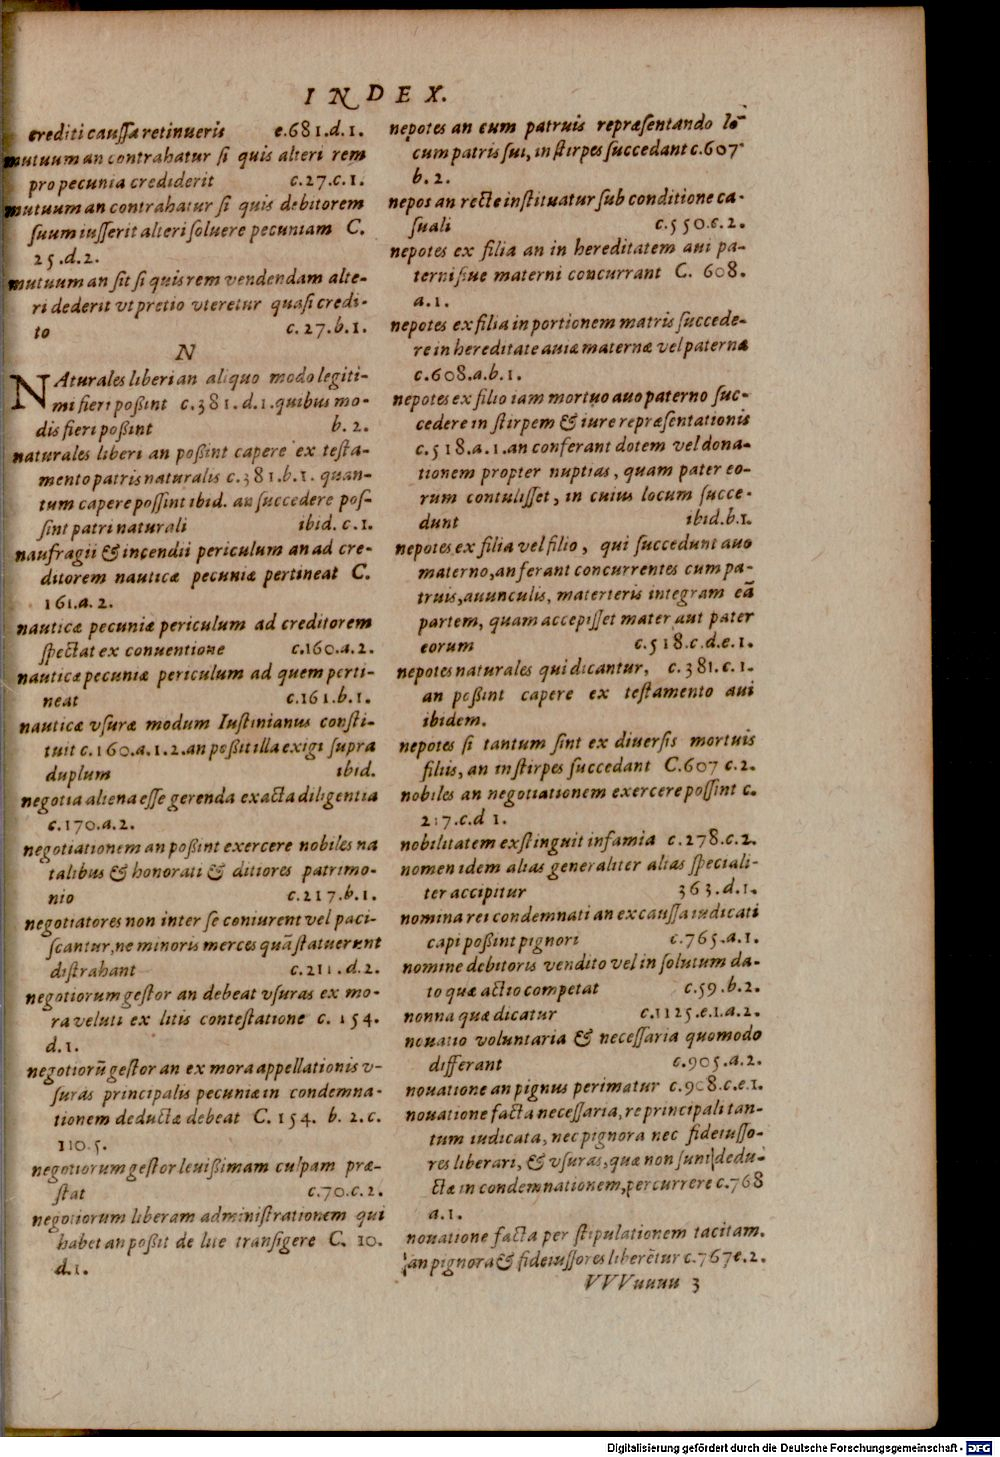 INDEX.
crediti caussa retinueris c.681.d.1.
mutuum an contrahatur si quis alteri rem
pro pecunia crediderit c.27.c.1.
mutuum an contrahatur si quis debitorem
suum iusserit alteri soluere pecuniam C.
25.d.2.
mutuum an sit si quis rem vendendam alte-
ri dederit vt pretio vteretur quasi credi-
to c.27.b.1.
N
NAturales liberi an aliquo modo legiti-
mi fieri poßint c.381.d.1.quibus mo-
dis fieri poßint b.2.
naturales liberi an poßint capere ex testa-
mento patris naturalis c.381.b.1. quan-
tum capere possint ibid. an succedere pos-
sint patri naturali ibid. c.1.
naufragii & incendii periculum an ad cre-
ditorem nauticæ pecuniæ pertineat C.
161.a.2.
nauticæ pecuniæ periculum ad creditorem
spectat ex conuentione c.160.a.2.
nauticæ pecuniæ periculum ad quem perti-
neat c.161.b.1.
nauticæ vsuræ modum Iustinianus consti-
tuit c.160.a.1.2.an poßit illa exigi supra
duplum ibid.
negotia aliena esse gerenda exacta diligentia
c.170.a.2.
negotiationem an poßint exercere nobiles na
talibus & honorati & ditiores patrimo-
nio c.217.b.1.
negotiatores non inter se coniurent vel paci-
scantur,ne minoris merces quā statuerunt
distrahant c.211.d.2.
negotiorum gestor an debeat vsuras ex mo-
ra veluti ex litis contestatione c. 154.
d.1.
negotiorū gestor an ex mora appellationis v-
suras principalis pecuniæ in condemna-
tionem deductæ debeat C. 154. b. 2.c.
110.5.
negotiorum gestor leuißimam culpam præ-
stat c.70.c.2.
negotiorum liberam administrationem qui
habet an poßit de lite transigere C. 10.
d.1.
nepotes an cum patruis repræsentando lo-
cum patris sui, in stirpes succedant c.607
b.2.
nepos an recte instituatur sub conditione ca-
suali c.550.c.2.
nepotes ex filia an in hereditatem aui pa-
terni siue materni concurrant C. 608.
a.1.
nepotes ex filia in portionem matris succede-
re in hereditate auiæ maternæ vel paternæ
c.608.a.b.1.
nepotes ex filio iam mortuo auo paterno suc-
cedere in stirpem & iure repræsentationis
c.518.a.1.an conferant dotem vel dona-
tionem propter nuptias, quam pater eo-
rum contulisset, in cuius locum succe-
dunt ibid.b.1.
nepotes ex filia vel filio, qui succedunt auo
materno,an ferant concurrentes cum pa-
truis,auunculis, materteris integram eā
partem, quam accepisset mater aut pater
eorum c.518.c.d.e.1.
nepotes naturales qui dicantur, c.381.c.1.
an poßint capere ex testamento aui
ibidem.
nepotes si tantum sint ex diuersis mortuis
filiis, an in stirpes succedant C.607 c.2.
nobiles an negotiationem exercere possint c.
217.c.d 1.
nobilitatem exstinguit infamia c.278.c.2.
nomen idem alias generaliter alias speciali-
ter accipitur 363.d.1.
nomina rei condemnati an ex caussa iudicati
capi poßint pignori c.765.a.1.
nomine debitoris vendito vel in solutum da-
to quæ actio competat c.59.b.2.
nonna quæ dicatur c.1125.e.1.a.2.
nouatio voluntaria & necessaria quomodo
differant c.905.a.2.
nouatione an pignus perimatur c.908.c.e.1.
nouatione facta necessaria,re principali tan-
tum iudicata, nec pignora nec fideiusso-
res liberari, & vsuras,quæ non sunt dedu-
ctæ in condemnationem,percurrere c.768
a.1.
nouatione facta per stipulationem tacitam.
an pignora & fideiussores liberētur c.767e.2.
VVVuuuu 3
Digitalisierung gefördert durch die Deutsche Forschungsgemeinschaft - DFG